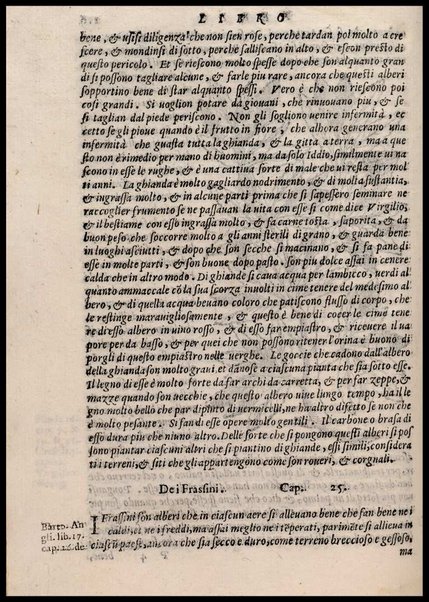 LIBRO
bene, & usisi diligenza che non sien rose, perche tardan poi molto a cre
scere, & mondinsi di sotto, perche salliscano in alto, & escon presto di
questo pericolo. Et se riescono molto spesse dopo che son alquanto gran
di si possono tagliare alcune, & farle piu rare, ancora che questi alberi
sopportino bene di star alquanto spessi. Vero è che non riescono poi
cosi grandi. Si voglion potare da giouani, che rinuouano piu, & se
si taglian dal piede periscono. Non gli sogliono uenire infermità, ec
cetto se gli pioue quando è il frutto in fiore, che alhora generano una
infermità che guasta tutta la ghianda, & la gitta a terra, ma a que
sto non è rimedio per mano di huomini, ma da solo Iddio, similmente ui na
scono in esse le rughe, & è una cattiua sorte di male che ui resta per mol
ti anni. La ghianda è molto gagliardo nodrimento, & di molta sustantia,
& ingrassa molto, & in alcune parti prima che si sapessero seminare ne
raccoglier frumento se ne passauan la uita con esse si come dice Virgilio,
& il bestiame con esso ingrassa molto, & fa carne tosta, saporita, & da
buon peso che soccorre molto a gli anni sterili di grano, & guarda bene
in luoghi asciutti, & dopo che son secche si macinano, & si fa pane di
esse in molte parti, & son buone dopo pasto, son piu dolce assai in cenere
calda che in altro modo. Di ghiande si caua acqua per lambicco, uerdi al
quanto ammaccale cō la sua scorza inuolti in cime tenere del medesimo al
bero, & di quella acqua beuano coloro che patiscono flusso di corpo, che
le restinge marauigliosamente, & questo è bene di cocer le cime tene
re di esso albero in uino rosso, & di esso far empiastro, & riceuere il ua
pore per da basso, & per quei che non possono ritener l'orina è buono di
porgli di questo empiastro nelle uerghe. Le goccie che cadono dall'albero
della ghianda son molto graui. et dānose a ciascuna pianta che sia sotto esse.
Il legno di esse è molto forte da far archi da carretta, & per far zeppe, &
mazze quando son uecchie, che questo albero uiue lungo tempo, ha il le
gno molto bello che par dipinto di uermicelli, ne ha altro difetto se non che
è molto pesante. Si fan di esse opere molto gentili. Il carbone o brasa di
esso dura piu che niuno altro. Delle sorte che si pongono questi alberi si pos
sono piantar ciascuni altri che si piantino di ghiande, essi simili, considera
ti i terreni, & siti che gli appartengono come son roueri, & corgnali.
De i Frassini. Cap. 25.
Bărto. An
gli. lib. 17.
cap. 16. de.
I Frassini son alberi che in ciascun aere si alleuano bene che fan bene ne i
caldi, et ne i freddi, ma assai meglio ne i tēperati, parimēte si alleua in
ciascū paese, ancora che sia secco e duro, come terreno breccioso e gessoso,
ma